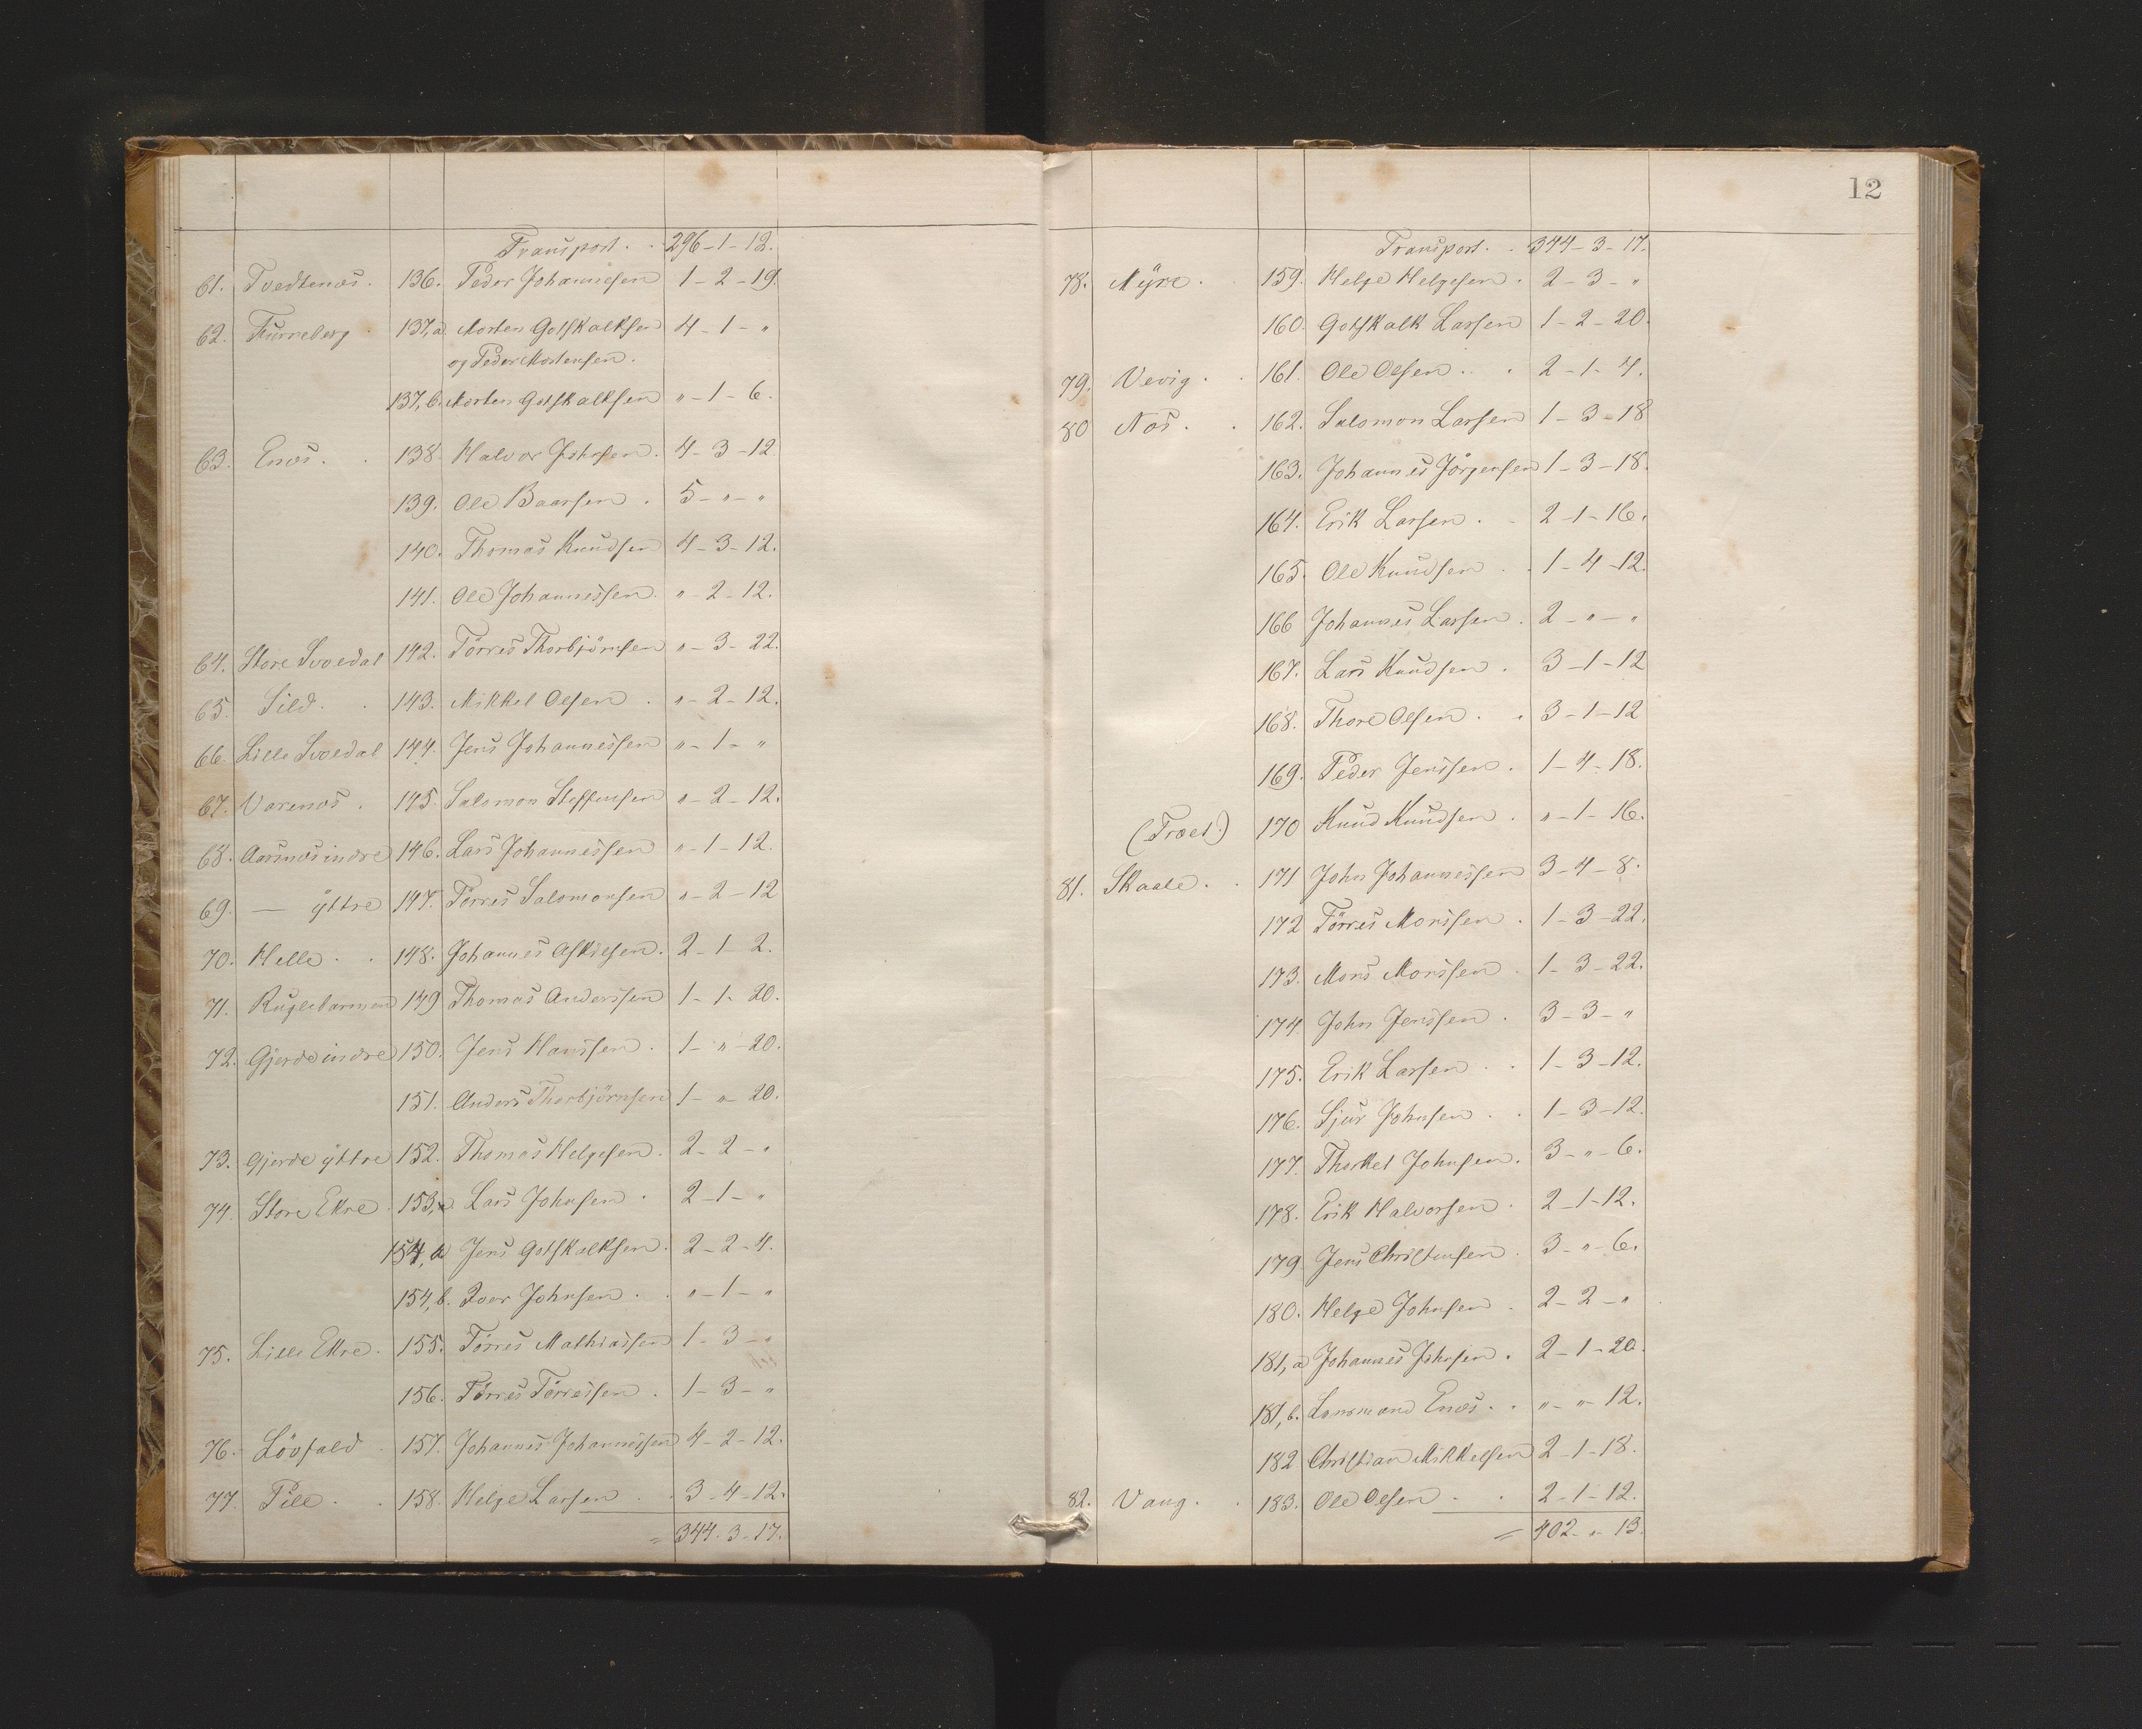 Transport. . 296-1-12.
61. Tvedtenæs. 136. Peder Johannesen 1-2-19.
62. Furreberg. 137,a Morten Gotskalksen 4-1-"
og Peder Mortensen.
137,b. Morten Gotskalksen "-1-6.
63. Enæs. . 138. Halvor Johnsen. 4-3-12
139. Ole Baarsen . 5-"-"
140. Thomas Knudsen 4-3-12.
141. Ole Johannessen. "-2-12.
64. Store Svoedal 142. Törres Thorbjörnsen "-3-22.
65. Sild. . 143. Mikkel Olsen . "-2-12.
66. Lille Svoedal 144. Jens Johannessen "-1-"
67. Varenæs. 145. Salomon Steffensen "-2-12.
68. Aarsnæs indre 146. Lars Johannessen "-1-12.
69. — ÿttre 147. Törres Salomonsen "-2-12
70. Helle. . 148. Johannes Askiesen. 2-1-2.
71. 149 Thomas Anderssen 1-1-20.
72. Gjerde indre 150. Jens Hanssen. 1-"-20.
151. Anders Thorbjörnsen 1-"-20.
73. Gjerde ÿttre 152. Thomas Helgesen. 2-2-"
74. Store Ekre. 153,a. Lars Johnsen. 2-1-"
154,a Jens Gotskalksen. 2-2-4.
154,b. Iver Johnsen. . "-1-"
75. Lille Ekre. 155. Törres Mathiassen 1-3-"
156. Törres Törressen. 1-3-"
76. Lövfald . 157. Johannes Johannessen 4-2-12.
77. Pile. . 158. Helge Larsen . . 3-4-12.
= 344.3-17.
12
Transport. . 344-3-17.
78. Mÿre. . 159. Helge Helgesen. 2-3-"
160. Gotskalk Larsen 1-2-20.
79. Vevig. . 161. Ole Olsen. . 2-1-4.
80 Næs. . 162. Salomon Larsen 1-3-18
163. Johannes Jörgensen 1-3-18.
164. Erik Larsen. . 2-1-16.
165. Ole Knudsen . . 1-4-12.
166 Johannes Larsen. 2-"-"
167. Lars Knudsen . 3-1-12
168. Thore Olsen. . 3-1-12
169. Peder Jenssen. 1-4-18.
(Træet.) 170 Knud Knudsen . "-1-16.
81. Skaale. . 171 John Johannessen 3-4-8.
172 Törres Monssen . 1-3-22.
173. Mons Monssen . 1-3-22.
174. John Jenssen . 3-3-"
175. Erik Larsen . . 1-3-12.
176. Sjur Johnsen . . 1-3-12.
177. Thorkel Johnsen. 3-"-6.
178. Erik Halvorsen. 2-1-12.
179 Jens Christensen. 3-"-6.
180. Helge Johnsen . 2-2-"
181,a Johannes Johnsen. 2-1-20.
181,b. Lensmand Enæs. . "-"-12.
182 Christian Mikkelsen 2-1-18.
82. Vang. . 183. Ole Olsen . . 2-1-12.
= 402-"-13.